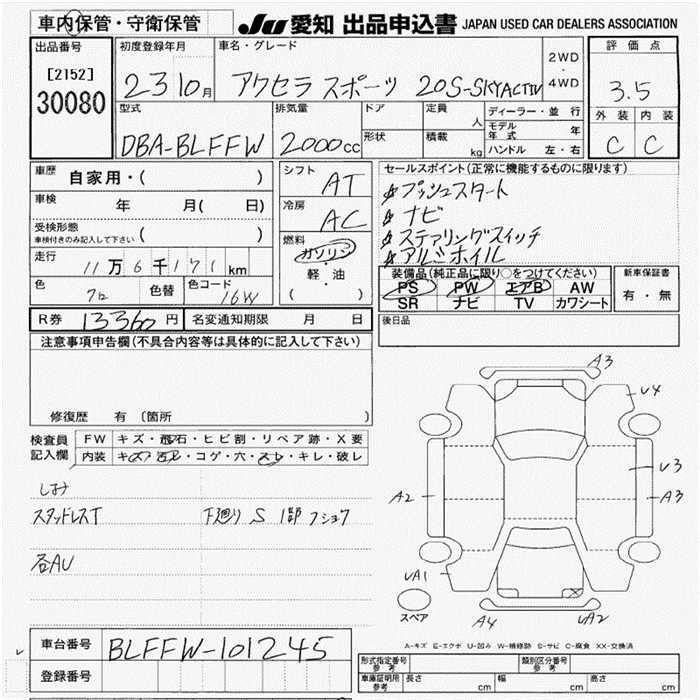 車内保管・守衛保管
JU 愛知 出品申込書 JAPAN USED CAR DEALERS ASSOCIATION
出品番号
[2152]
30080
初度登録年月
23 10月
車名・グレード
アクセラ スポーツ 20S-SKYACTIV
2WD
・
4WD
評価点
3.5
外装 内装
C C
型式
DBA-BLFFW
排気量
2000cc
ドア
形状
定員
人
積載
kg
ディーラー・並 行
モデル年式 年
ハンドル 左・右
車歴 自家用・( )
車検 年 月( 日)
受検形態
車検付きのみ記入して下さい ( )
走行
11万6千171km
色
クロ
色替
色コード
16W
シフト
AT
冷房
AC
燃料
ガソリン
・
軽・油
( )
セールスポイント(正常に機能するものに限ります)
プッシュスタート
ナビ
ステアリングスイッチ
アルミホイル
装備品(純正品に限り○をつけてください)
PS PW エアB AW
SR ナビ TV カワシート
新車保証書
有・無
R券 13360円
名変通知期限 月 日
後日品
注意事項申告欄(不具合内容等は具体的に記入して下さい)
修復歴 有 (箇所 )
検査員
記入欄
FW キズ・飛石・ヒビ割・リペア跡・X要
内装 キズ・汚レ・コゲ・穴・スレ・キレ・破レ
シミ
スタッドレスT 下廻り S 1部 フショク
各AU
A3
U4
U3
A2
A3
UA1
スペア
A4
UA2
A-キズ E-エクボ U-凹み W-補修跡 S-サビ C-腐食 XX-交換済
車台番号 BLFFW-101245
登録番号
型式指定番号
参考
類別区分番号
参考
車庫証明用
参考
長さ cm 幅 cm 高さ cm